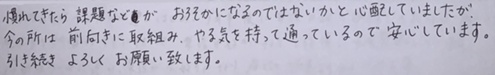 慣れてきたら 課題などが おろそかになるのではないかと心配していましたが
今の所は 前向きに取組み、やる気を持って通っているので安心しています。
引き続き よろしく お願い致します。